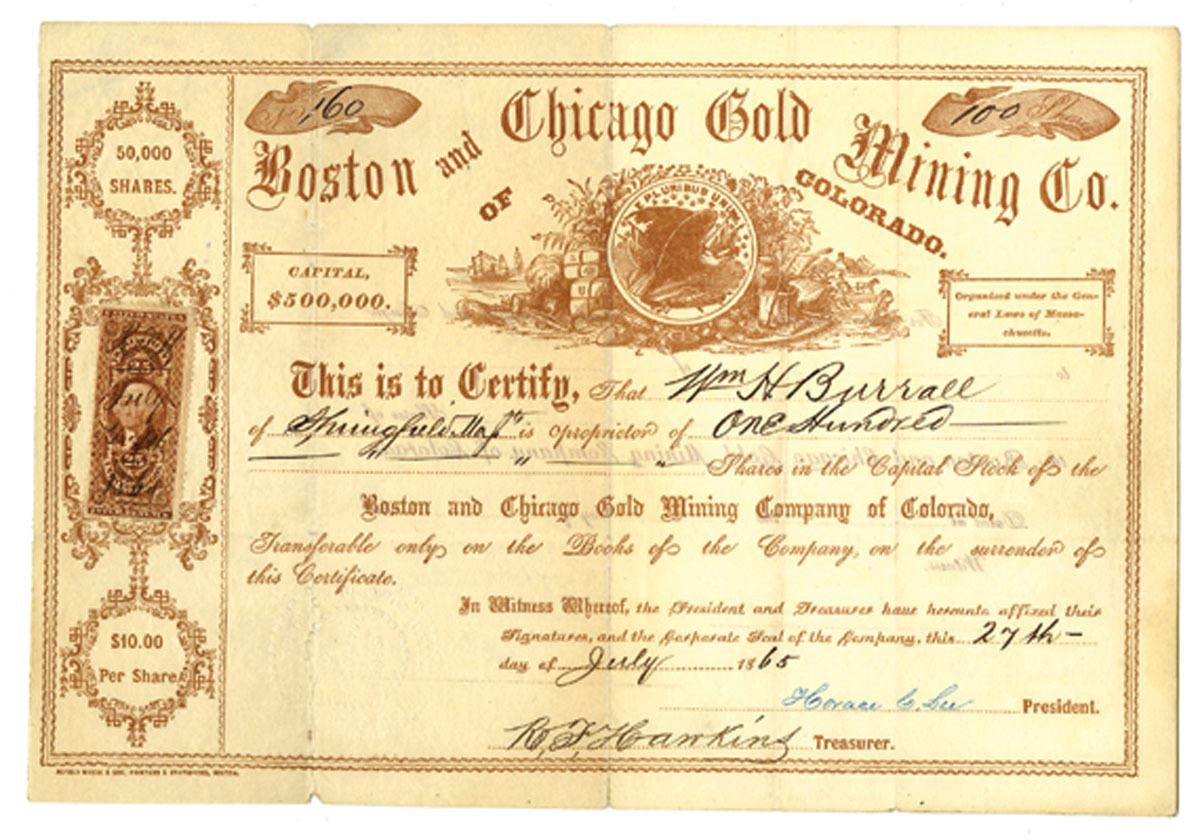 50,000
SHARES.
No. 160
100 Shares
Boston and Chicago Gold Mining Co.
OF COLORADO.
E PLURIBUS UNUM
CAPITAL,
$500,000.
Organized under the Gen-
eral Laws of Massa-
chusetts.
This is to Certify, That Wm H Burrall
of Springfield Mass is proprietor of One Hundred
Shares in the Capital Stock of the
Boston and Chicago Gold Mining Company of Colorado,
Transferable only on the Books of the Company, on the surrender of
this Certificate.
In Witness Whereof, the President and Treasurer have hereunto affixed their
Signatures, and the Corporate Seal of the Company, this 27th
day of July 1865
Horace C. Lee President.
R. F. Hawkins Treasurer.
$10.00
Per Share